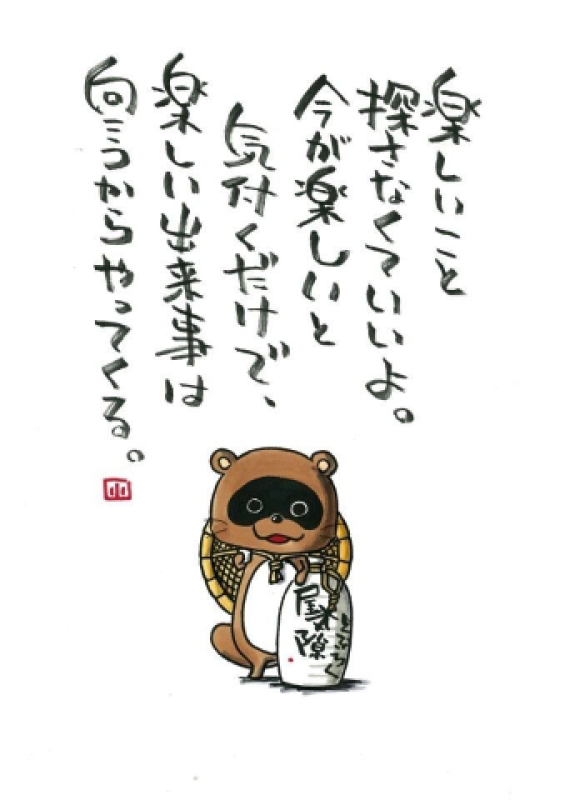 楽しいこと
探さなくていいよ。
今が楽しいと
気付くだけで、
楽しい出来事は
向こうからやってくる。
どぶろく